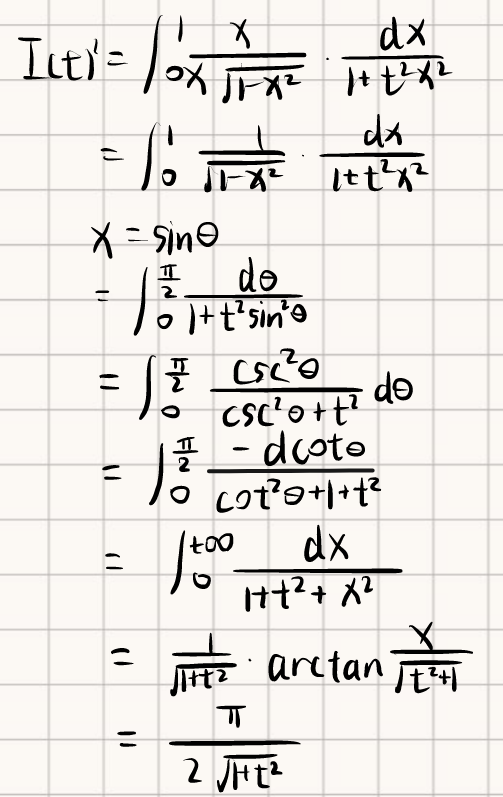 I(t)' = ∫₀¹ x/(x√(1-x²)) · dx/(1+t²x²)
= ∫₀¹ 1/√(1-x²) · dx/(1+t²x²)
x = sinθ
= ∫₀^(π/2) dθ/(1+t²sin²θ)
= ∫₀^(π/2) csc²θ/(csc²θ+t²) dθ
= ∫₀^(π/2) -dcotθ/(cot²θ+1+t²)
= ∫₀^(+∞) dx/(1+t²+x²)
= 1/√(1+t²) · arctan x/√(t²+1)
= π/(2√(1+t²))